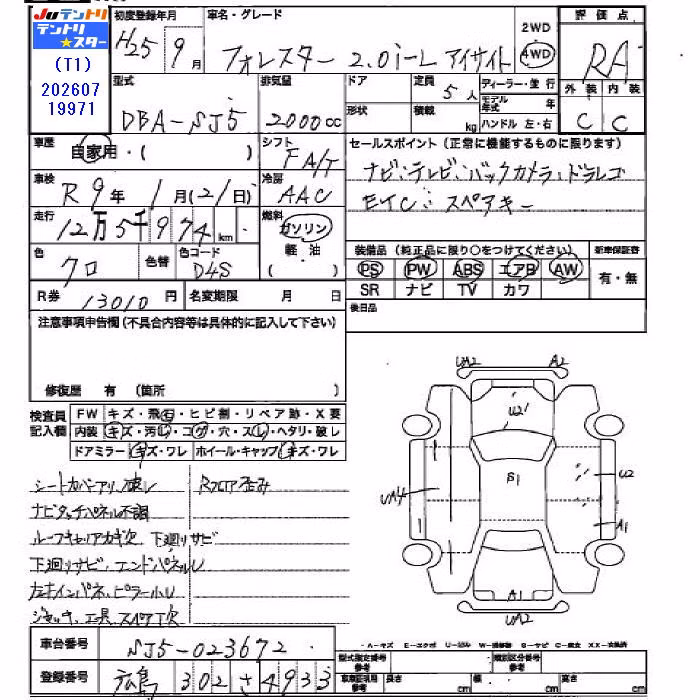 Juテントリ
テントリ
★スター
(T1)
202607
19971
初度登録年月
H25年9月
車名・グレード
フォレスター 2.0i-L アイサイト
2WD
4WD
評価点
RA
外装 内装
C C
型式
DBA-SJ5
排気量
2000cc
ドア
形状
定員
5人
積載
kg
ディーラー・並行
モデル年式 年
ハンドル 左・右
車歴
自家用・( )
シフト
FA/T
セールスポイント(正常に機能するものに限ります)
ナビ・テレビ・バックカメラ・ドラレコ
ETC スペアキー
車検
R9年1月(21日)
冷房
AAC
走行
12万5千974km
燃料
ガソリン
軽・油
( )
色
クロ
色替
色コード
D4S
装備品(純正品に限り○をつけてください)
新車保証書
PS PW ABS エアB AW
SR ナビ TV カワ
有・無
R券 13010円
名変期限 月 日
後日品
注意事項申告欄(不具合内容等は具体的に記入して下さい)
修復歴 有 (箇所 )
検査員
記入欄
FW キズ・飛石・ヒビ割・リペア跡・X要
内装 キズ・汚レ・コゲ・穴・スレ・ヘタリ・破レ
ドアミラー キズ・ワレ ホイール・キャップ キズ・ワレ
シートカバーアリ、凍レ
Rフロア歪み
ナビタッチパネル不調
ルーフキャリアカギ欠 下廻りサビ
下廻りサビ、エンドパネルU
左右インパネ、ピラー小U
ジャッキ、工具、スペアT欠
UA2 A2
U2
S1
UA4
U2
A1
A1
UA2
車台番号 SJ5-023672
登録番号 広島 302 さ 4933
A-キズ E-エクボ U-凹み W-補修跡 S-サビ C-腐食 XX-交換済
型式指定番号
類別区分番号
車庫証明用参考 長さ cm 幅 cm 高さ cm